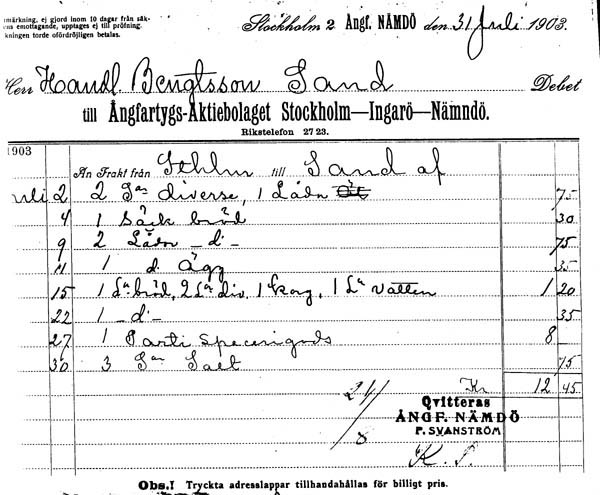 nmärkning, ej gjord inom 10 dagar från säk-
ns emottagande, upptages ej till pröfning.
kningen torde ofördröjligen betalas.
Stockholm 2 Ångf. NÄMDÖ den 31 Juli 1903.
Herr Handl. Bengtsson Sand Debet
till Ångfartygs-Aktiebolaget Stockholm—Ingarö—Nämndö.
Rikstelefon 27 23.
1903
An Frakt från Sthlm till Sand af
uli 2 2 diverse, 1 Låda 75
4 1 Säck bröd 30
9 2 Lådor - d - 75
11 1 d. Ägg 35
15 1 Lå bröd, 2 Lå div. 1 korg, 1 Lå Vatten 1 20
22 1 - d - 35
27 1 Parti Specerigods 8 -
30 3 Salt 75
Kr 12 45
24/8
Qvitteras
ÅNGF. NÄMDÖ
F. SVANSTRÖM
K. S.
Obs.! Tryckta adresslappar tillhandahållas för billigt pris.